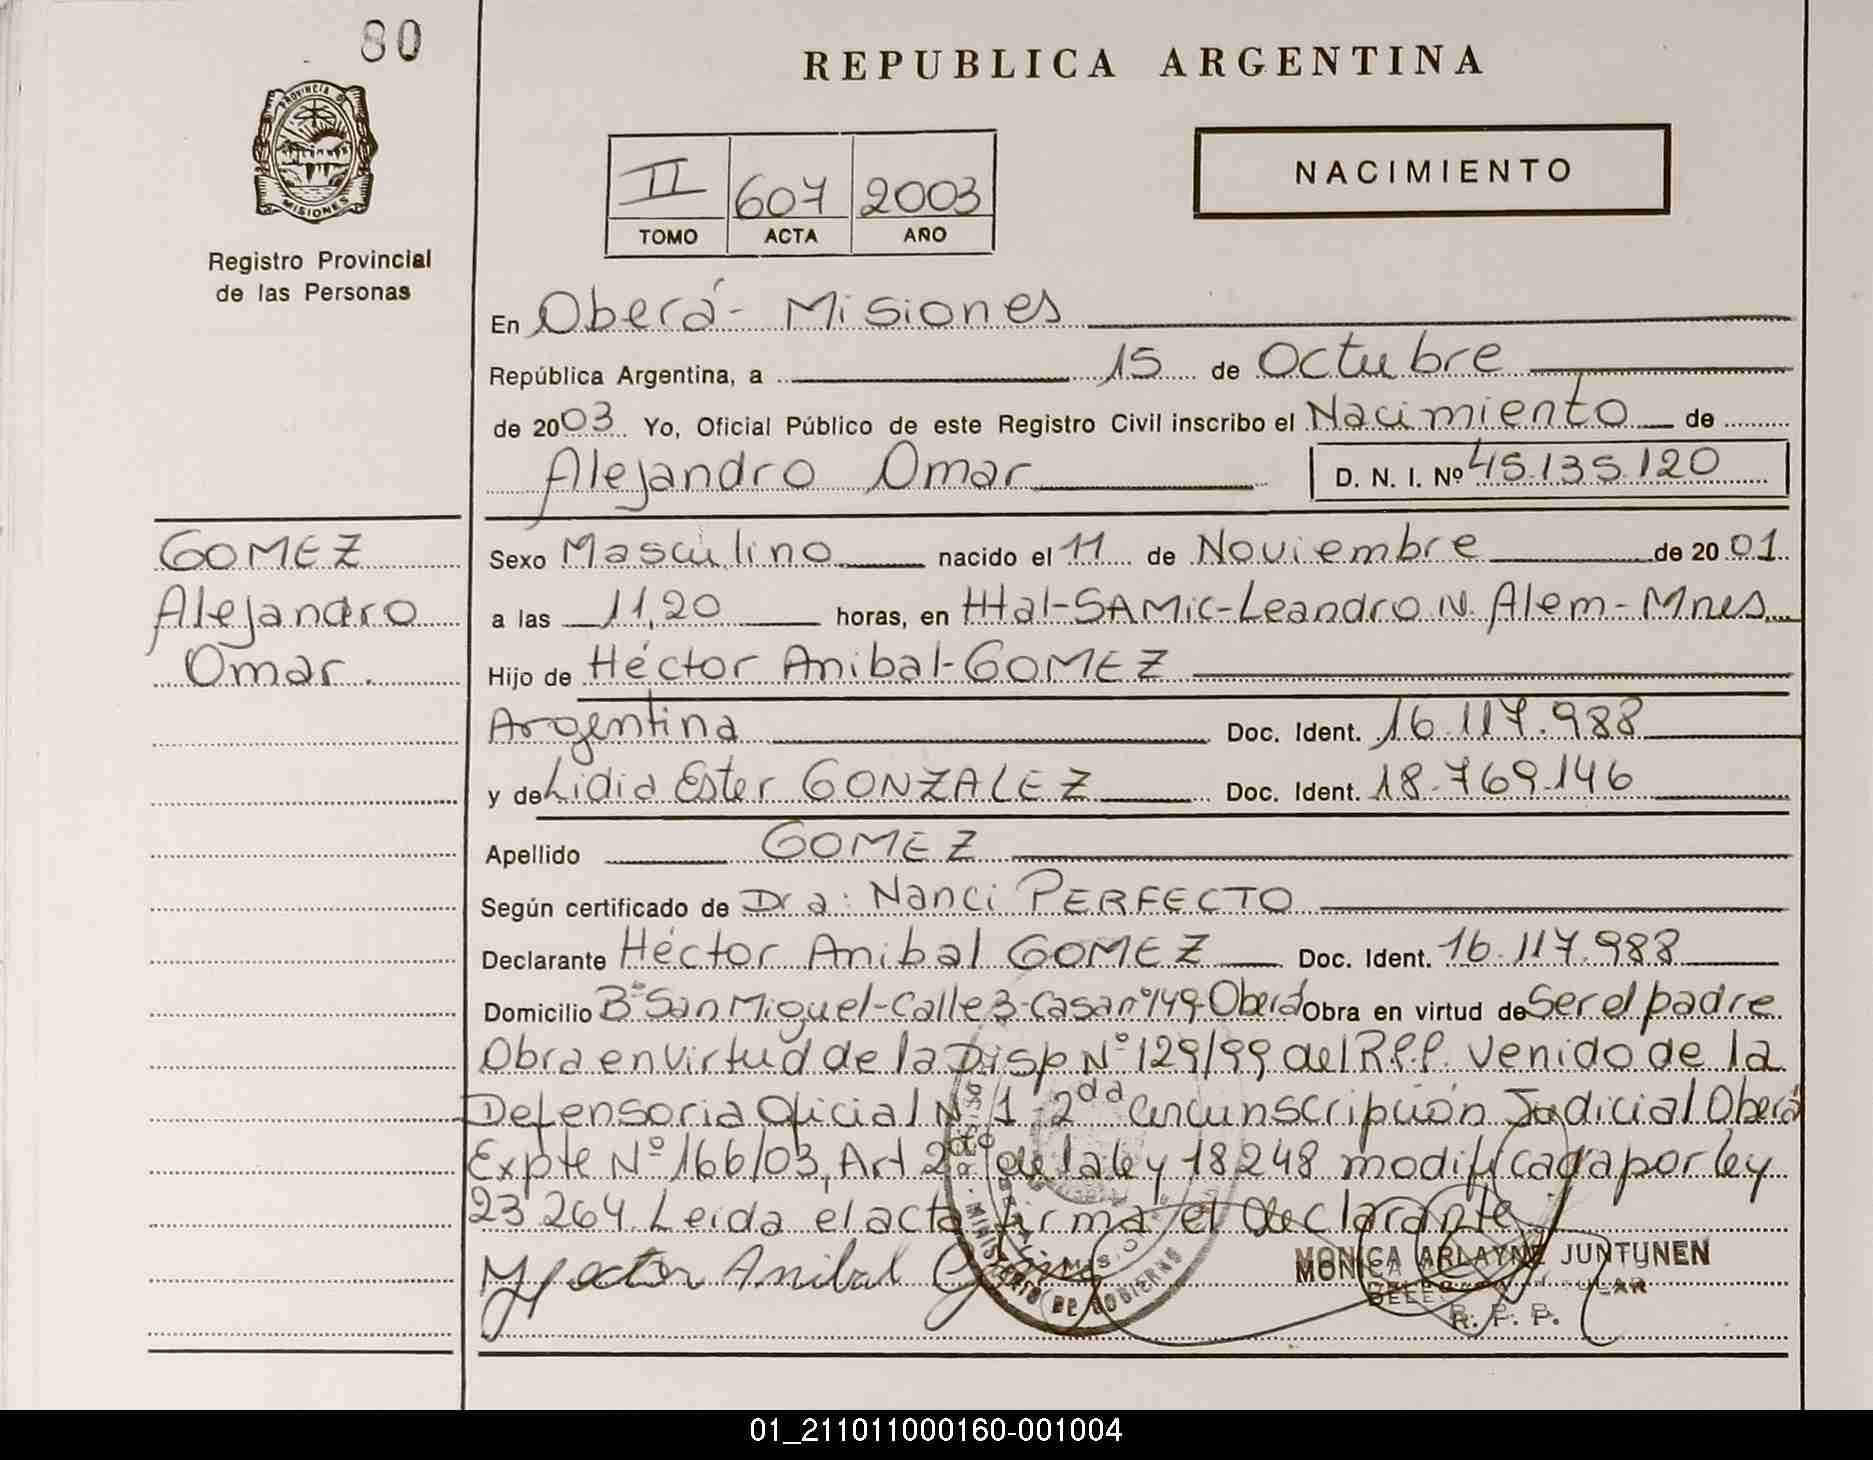 80
REPUBLICA ARGENTINA
PROVINCIA DE
MISIONES
Registro Provincial
de las Personas
II 607 2003
TOMO ACTA AÑO
NACIMIENTO
En Oberá - Misiones
República Argentina, a 15 de Octubre
de 2003 Yo, Oficial Público de este Registro Civil inscribo el Nacimiento de
Alejandro Omar D. N. I. Nº 45.135.120
GOMEZ
Alejandro
Omar.
Sexo Masculino nacido el 11 de Noviembre de 2001
a las 11,20 horas, en Htal-SAMic-Leandro N. Alem-Mnes
Hijo de Héctor Anibal-GOMEZ
Argentina Doc. Ident. 16.117.988
y de Lidia Ester GONZALEZ Doc. Ident. 18.769.146
Apellido GOMEZ
Según certificado de Dra: Nanci PERFECTO
Declarante Héctor Anibal GOMEZ Doc. Ident. 16.117.988
Domicilio Bº San Miguel-Calle 3-Casa nº 149-Oberá Obra en virtud de Ser el padre
Obra en virtud de la Disp. Nº 129/99 del R.P.P. venido de la
Defensoria Oficial Nº 1 2da Circunscripción Judicial Oberá
Expte Nº 166/03, Art 2do de la ley 18248 modificada por ley
23264. Leida el acta firma el declarante
Hector Anibal
MINISTERIO DE GOBIERNO
MONICA ARLAYNE JUNTUNEN
R. P. P.
01_211011000160-001004